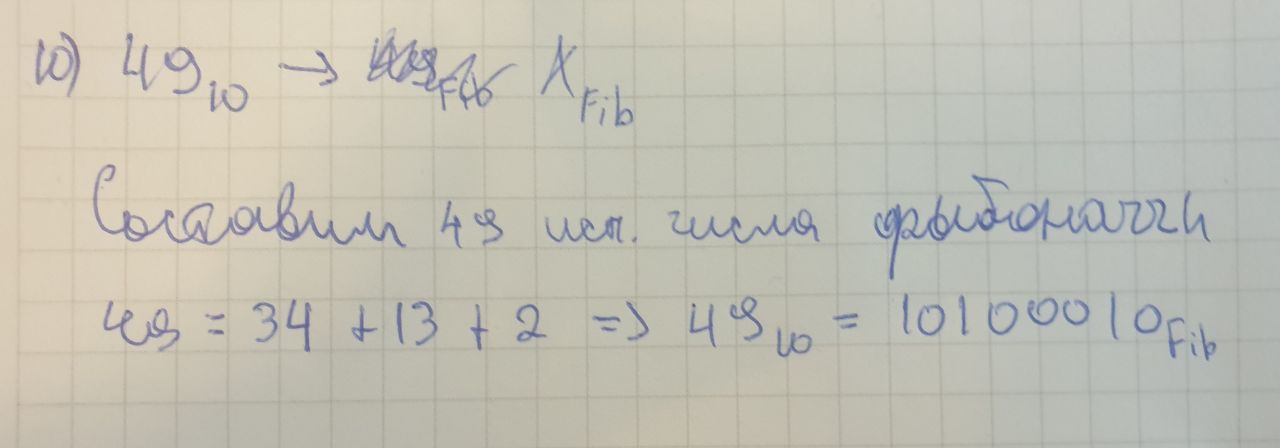 10) 49₁₀ → X_Fib
Составим 49 исп. числа фибоначчи
49 = 34 + 13 + 2 => 49₁₀ = 10100010_Fib